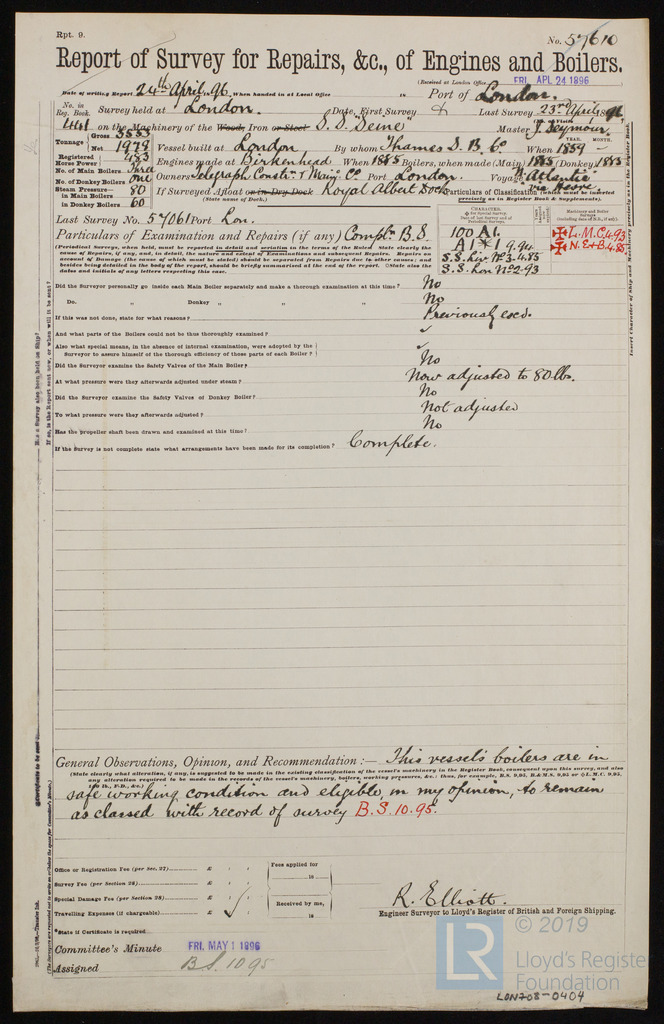 Rpt. 9.
No. 57610
Report of Survey for Repairs, &c., of Engines and Boilers.
(Received at London Office FRI. APL 24 1896
Date of writing Report 24th April 96 When handed in at Local Office 18 Port of London.
No. in Reg. Book. Survey held at London. Date, First Survey Last Survey 23rd April 1896
441 on the Machinery of the Wood, Iron or Steel S.S. "Seine" Master J. Seymour.
Tonnage Gross 3553 Net 1978 Vessel built at London By whom Thames S. B. Co When 1859
YEAR. MONTH.
Registered Horse Power 483 Engines made at Birkenhead When 1885 Boilers, when made (Main) 1885 (Donkey) 1885
No. of Main Boilers Three
No. of Donkey Boilers one Owners Telegraph Constn. & Main. Co. Port London. Voyage Atlantic
Steam Pressure in Main Boilers 80 If Surveyed Afloat or in Dry Dock Royal Albert Dock
in Donkey Boilers 60 (State name of Dock.)
Particulars of Classification (which must be inserted precisely as in Register Book & Supplements).
Last Survey No. 57061 Port Lon.
Particulars of Examination and Repairs (if any) Compln. B.S.
CHARACTER.
Machinery and Boiler Surveys
100 A1.
L.M.C. 4.93
A1 1 9.94
N.E&B. 4.85
S.S. Liv. No3-4.85
S.S. Lon No2-93
(Periodical Surveys, when held, must be reported in detail and seriatim in the terms of the Rules. State clearly the cause of Repairs, if any, and, in detail, the nature and extent of Examinations and subsequent Repairs. Repairs on account of Damage (the cause of which must be stated) should be separated from Repairs due to other causes; and besides being detailed in the body of the report, should be briefly summarised at the end of the report. State also the dates and initials of any letters respecting this case.
Did the Surveyor personally go inside each Main Boiler separately and make a thorough examination at this time? No
Do. " Donkey " " No
If this was not done, state for what reasons? Previously exd.
And what parts of the Boilers could not be thoroughly examined? ✓
Also what special means, in the absence of internal examination, were adopted by the
Surveyor to assure himself of the thorough efficiency of those parts of each Boiler? ✓
Did the Surveyor examine the Safety Valves of the Main Boiler? No
At what pressure were they afterwards adjusted under steam? Now adjusted to 80 lbs.
Did the Surveyor examine the Safety Valves of Donkey Boiler? No
To what pressure were they afterwards adjusted? Not adjusted
Has the propeller shaft been drawn and examined at this time? No
If the Survey is not complete state what arrangements have been made for its completion? Complete.
General Observations, Opinion, and Recommendation:— This vessel's boilers are in
(State clearly what alteration, if any, is suggested to be made in the existing classification of the vessel's machinery in the Register Book, consequent upon this survey, and also
any alteration required to be made in the records of the vessel's machinery, boilers, working pressures, &c.: thus, for example, B.S. 9,95, B.&M.S. 9,95 or L.M.C. 9,95,
safe working condition and eligible, in my opinion, to remain
as classed with record of survey B.S. 10.95.
Office or Registration Fee (per Sec. 27) £ : :
Fees applied for
18
Survey Fee (per Section 28) £ : :
Special Damage Fee (per Section 28) £ : :
Received by me,
Travelling Expenses (if chargeable) £ : :
18
R. Elliott.
Engineer Surveyor to Lloyd's Register of British and Foreign Shipping.
State if Certificate is required
Committee's Minute FRI. MAY 1 1896
Assigned B.S. 10 95
© 2019
LR
Lloyd's Register
Foundation
LON708-0404